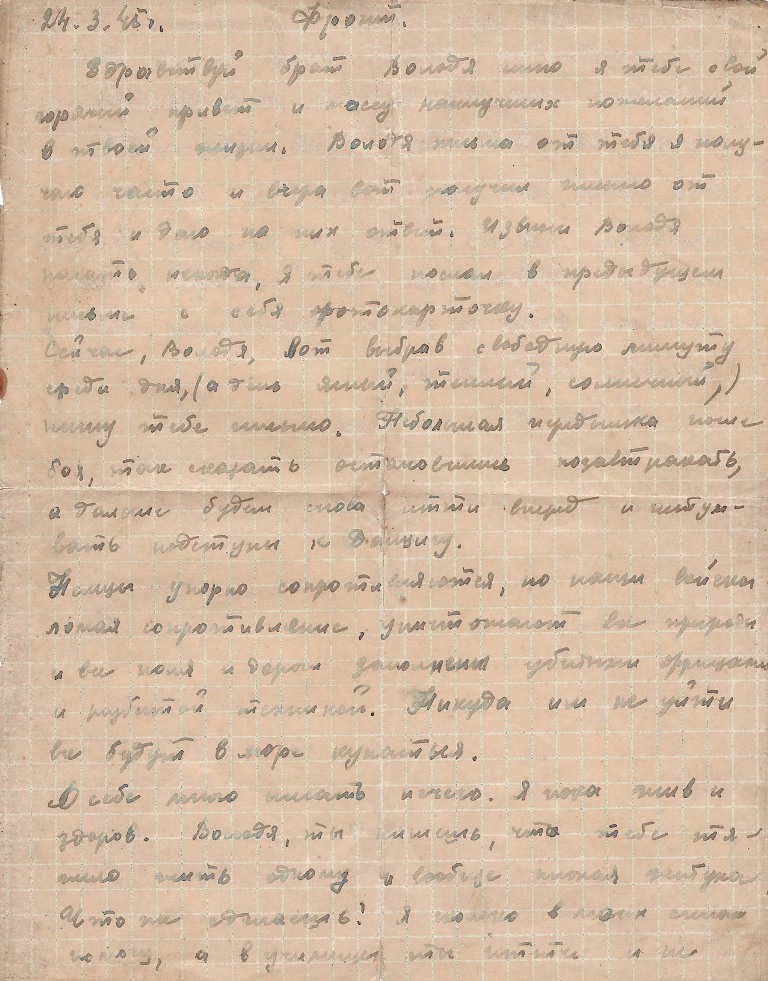 24.3.45г. Фронт.
Здравствуй брат Володя шлю я тебе свой
горячий привет и массу наилучших пожеланий
в твоей жизни. Володя письма от тебя я полу-
чаю часто и вчера вот получил письмо от
тебя и даю на них ответ. Извини Володя
писать некогда, я тебе послал в предыдущем
письме с себя фотокарточку.
Сейчас, Володя, вот выбрав свободную минуту
среди дня, (а день ясный, теплый, солнечный,)
пишу тебе письмо. Небольшая передышка после
боя, так сказать остановились позавтракать,
а дальше будем снова итти вперед и штурмо-
вать подступы к Данцигу.
Немцы упорно сопротивляются, но наши войска
ломая сопротивление, уничтожают все
и все поля и дороги заполнены убитыми фрицами
и разбитой техникой. Никуда им не уйти
все будут в море купаться.
О себе много писать нечего. Я пока жив и
здоров. Володя, ты пишешь, что тебе тя-
жело жить одному и вообще плохая житуха
Что же сделаешь! Я сколько в моих силах
помогу, а в училище ты итти и не